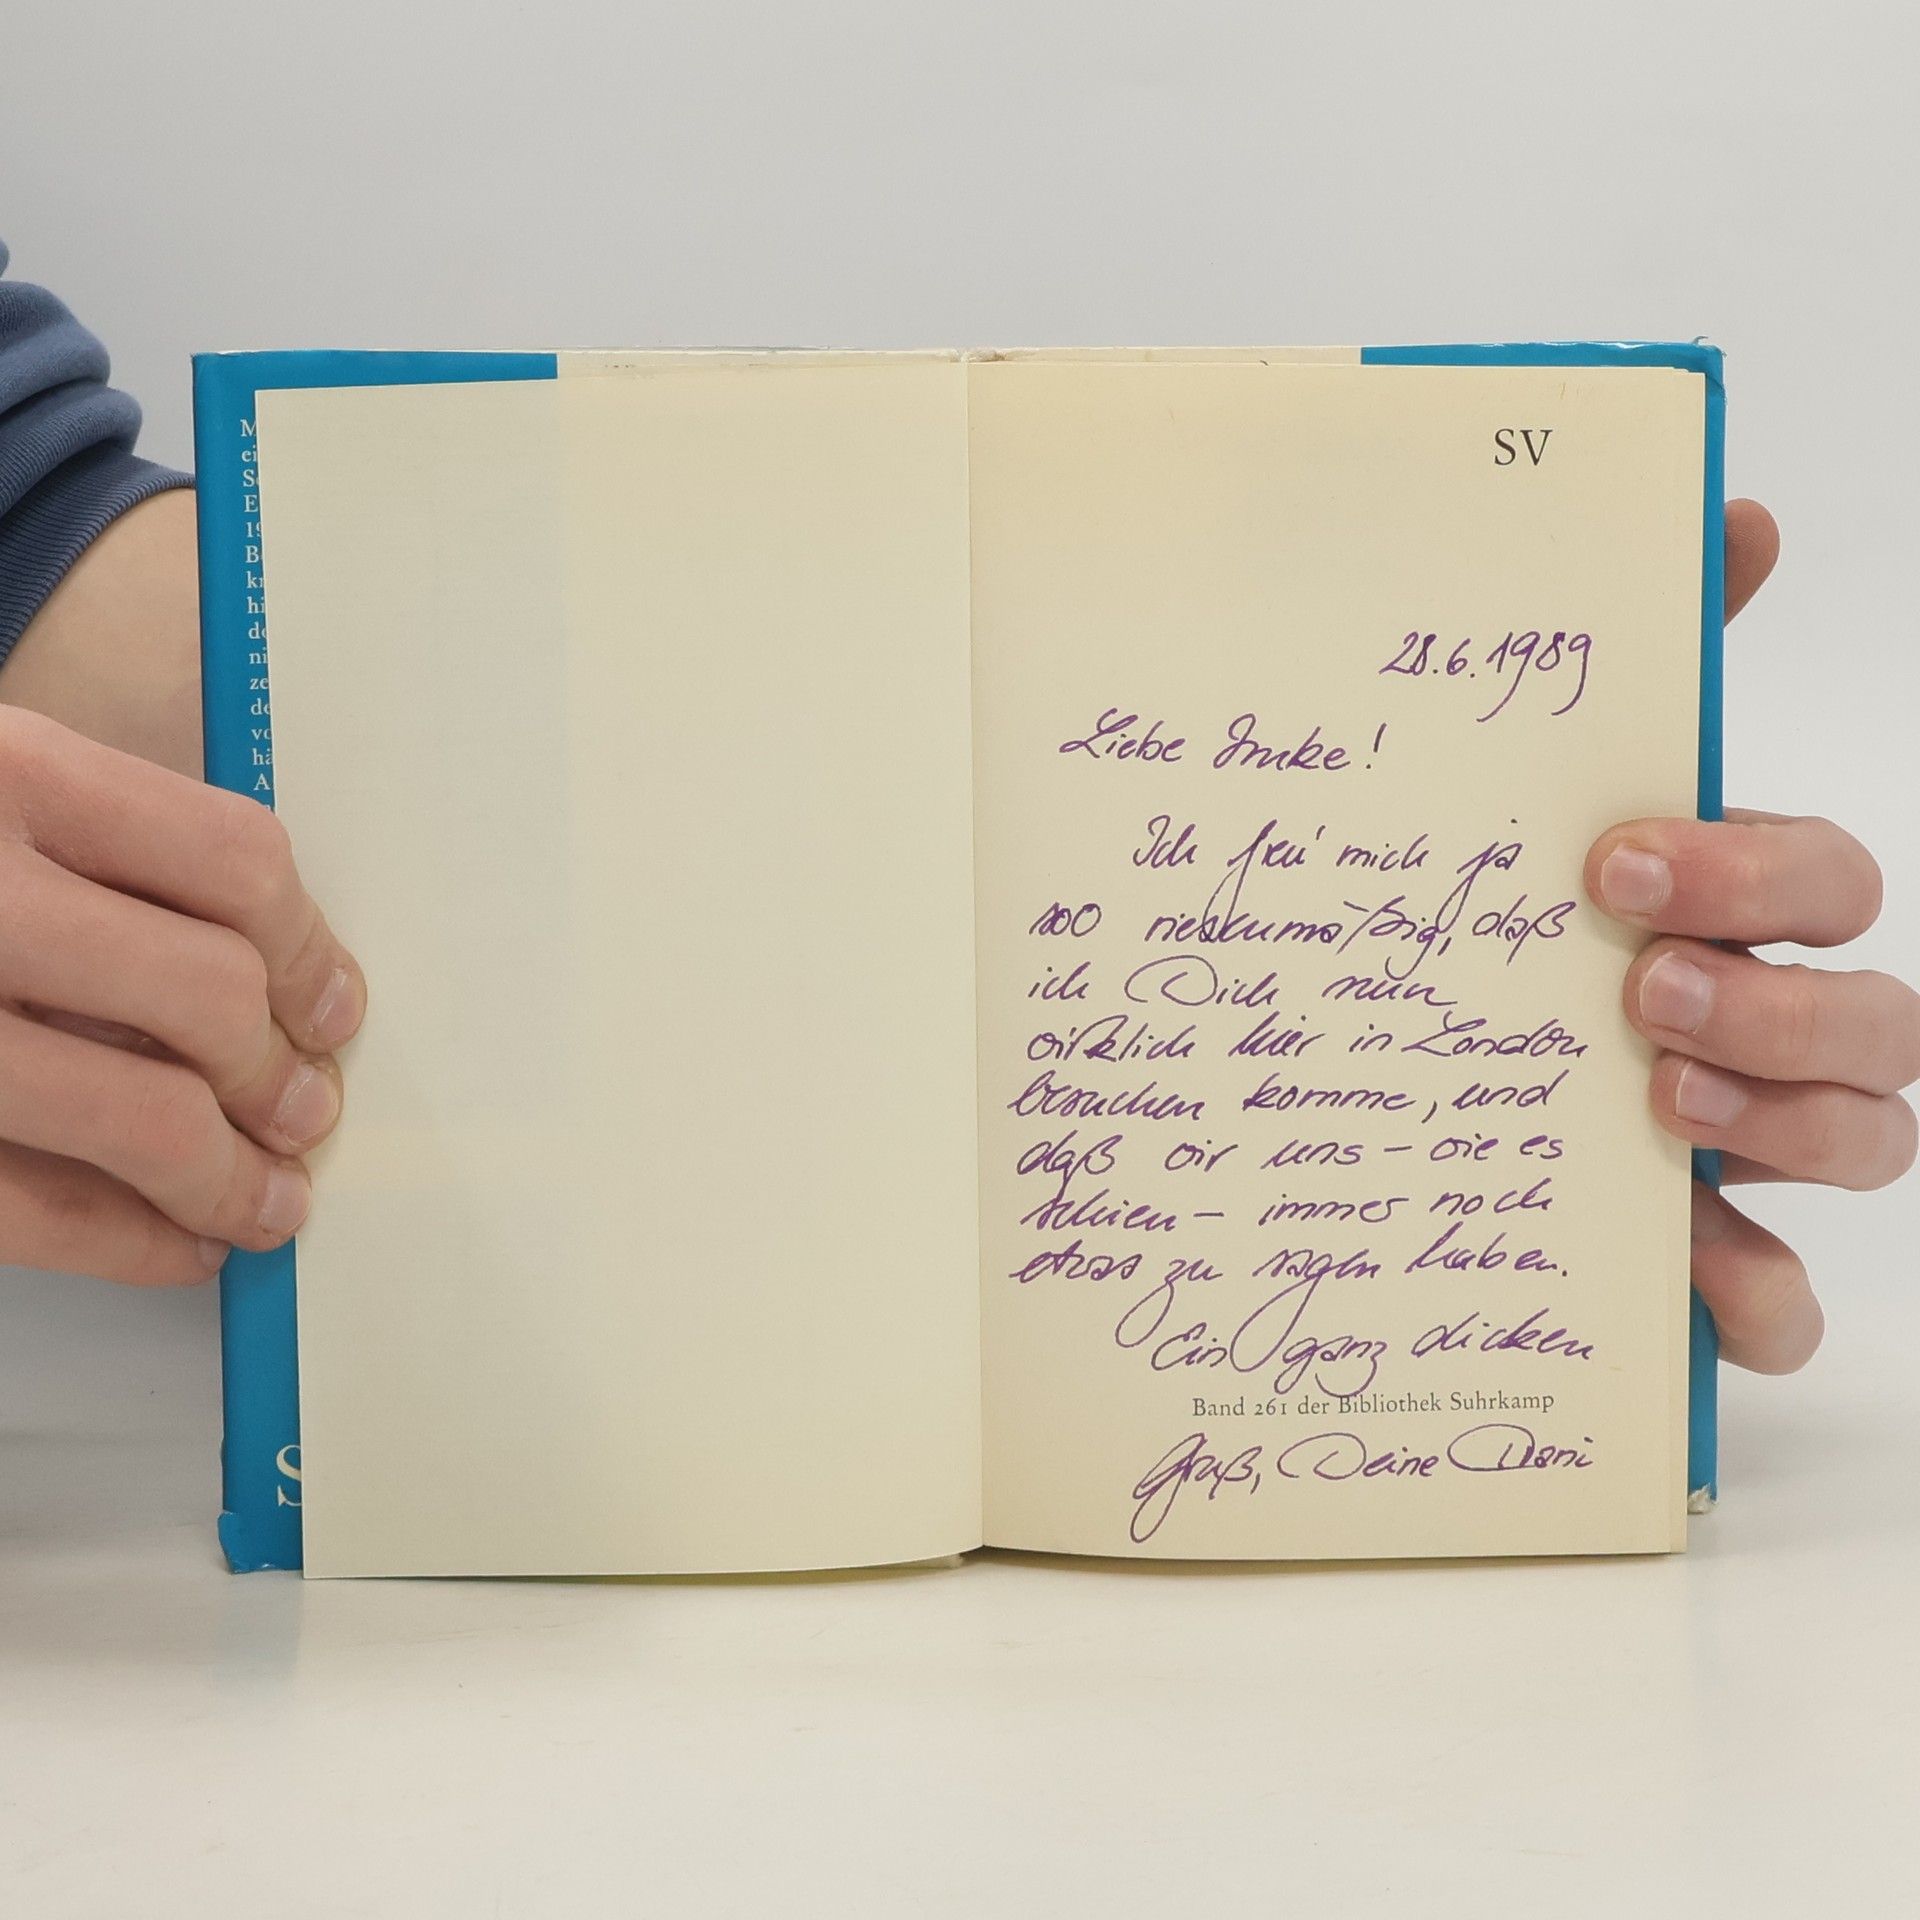 M
ei
S
E
19
B
k
hi
d
ni
ze
de
vo
hä
A
S
SV
28.6.1989
Liebe Imke!
Ich freu' mich ja
soo riesenmäßig, daß
ich Dich nun
wirklich hier in London
besuchen komme, und
daß wir uns – wie es
schien – immer noch
etwas zu sagen haben.
Ein ganz dicken
Band 261 der Bibliothek Suhrkamp
Gruß, Deine Dani